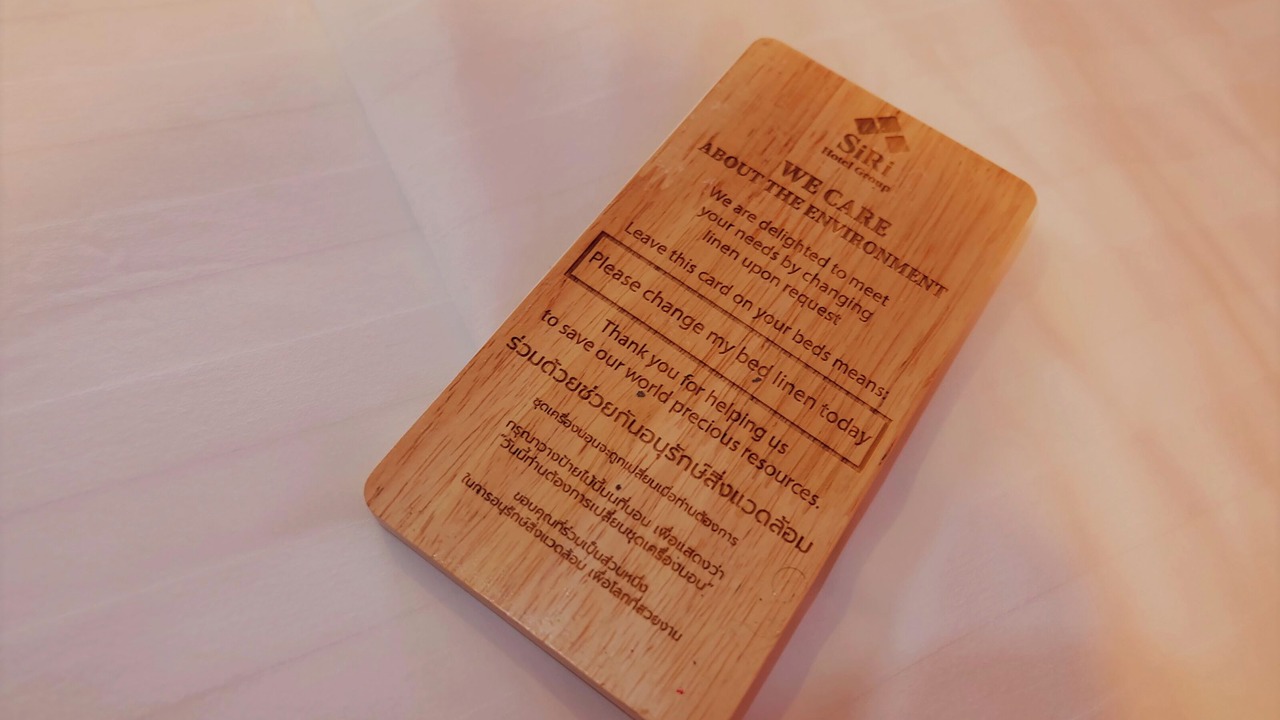 SiRi
Hotel Group
WE CARE
ABOUT THE ENVIRONMENT
We are delighted to meet
your needs by changing
linen upon request
Leave this card on your beds means:
Please change my bed linen today
Thank you for helping us
to save our world precious resources.
ร่วมด้วยช่วยกันอนุรักษ์สิ่งแวดล้อม
ชุดเครื่องนอนจะถูกเปลี่ยนเมื่อท่านต้องการ
กรุณาวางป้ายไม้นี้บนที่นอน เพื่อแสดงว่า
"วันนี้ท่านต้องการเปลี่ยนชุดเครื่องนอน"
ขอบคุณที่ร่วมเป็นส่วนหนึ่ง
ในการอนุรักษ์สิ่งแวดล้อม เพื่อโลกที่สวยงาม